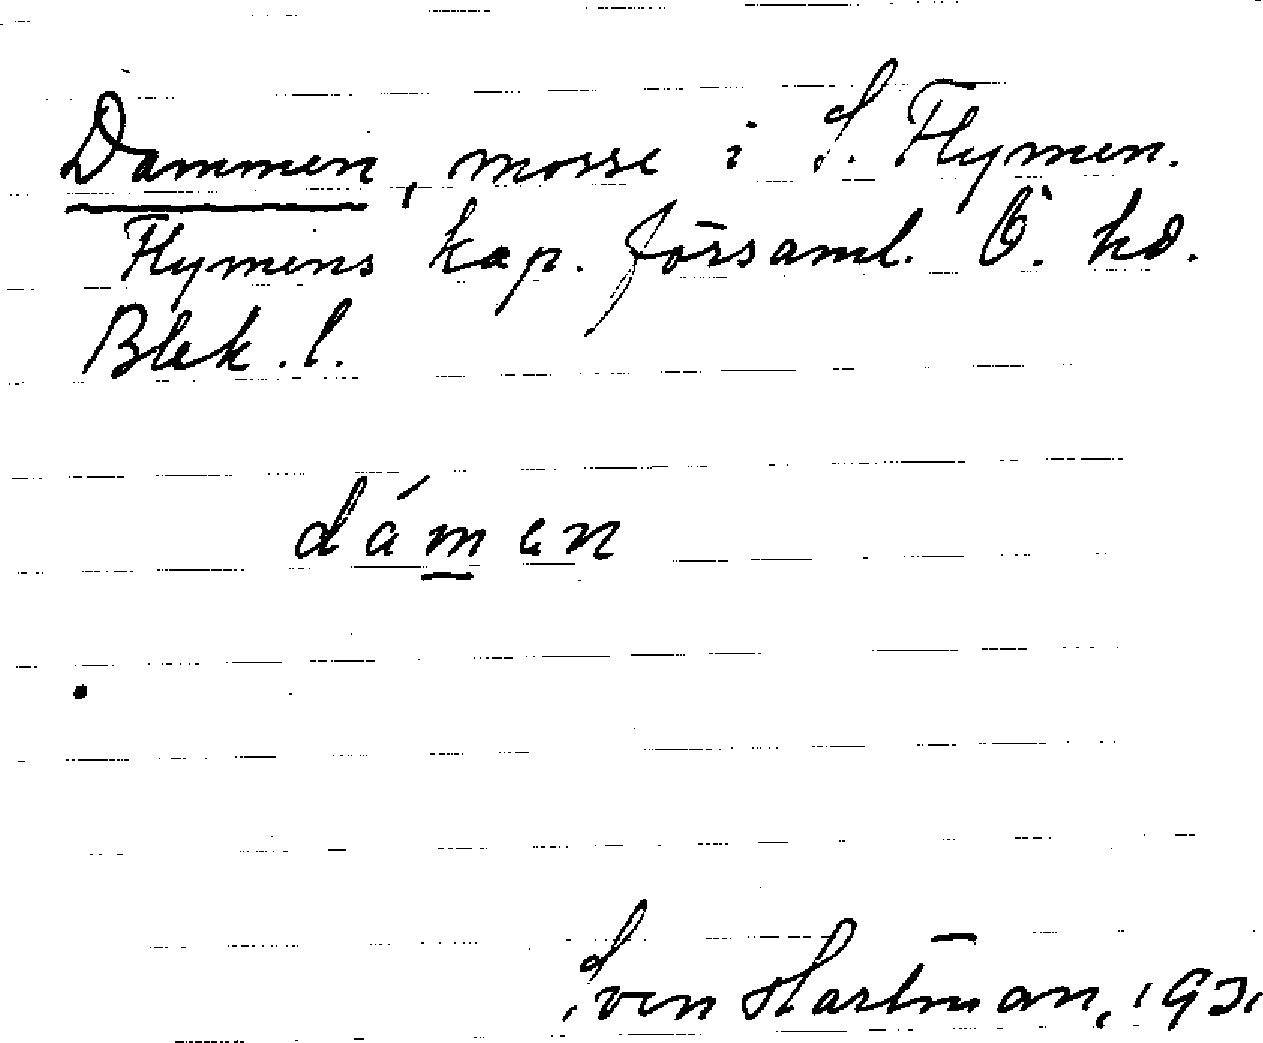 Dammen, mosse i S. Flymen.
Flymens kap. församl. Ö. hd.
Blek. l.
dámen
Sven Hartman, 1931